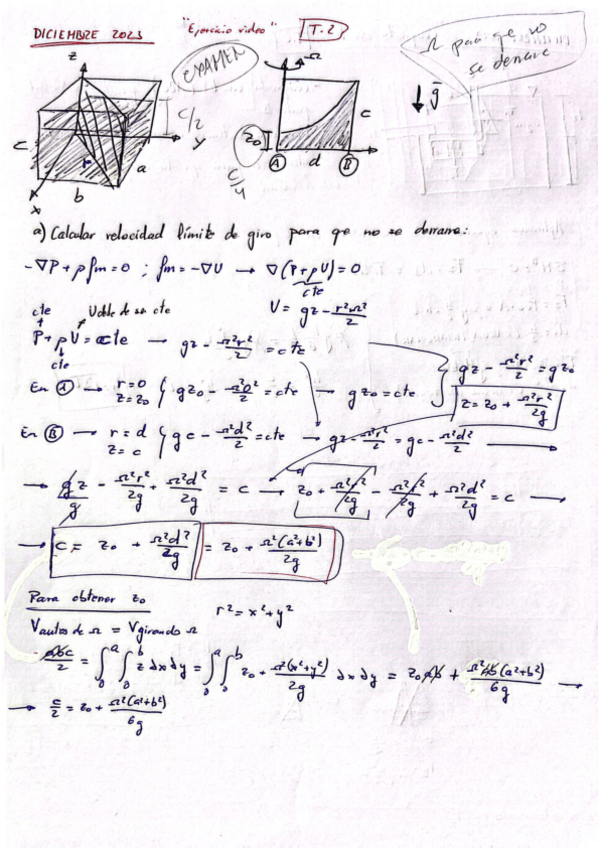 DICIEMBRE 2023 "Ejercicio video" T-2
EXAMEN
Ω para que no
se derrame
z
c
c/2
y
a
r
b
x
Ω
z₀
c/4
c
A d B
↓ḡ
a) Calcular velocidad límite de giro para que no se derrame:
-∇P + ρfm = 0 ; fm = -∇U → ∇(P + ρU) = 0
cte
cte Uoble de su cte U = gz - r²Ω²/2
P + ρU = cte → gz - Ω²r²/2 = cte
cte
gz - Ω²r²/2 = gz₀
z = z₀ + Ω²r²/2g
En A → r=0 z=z₀ { gz₀ - Ω²0²/2 = cte → gz₀ = cte
En B → r=d z=c { gc - Ω²d²/2 = cte → gz - Ω²r²/2 = gc - Ω²d²/2 →
→ gz/g - Ω²r²/2g + Ω²d²/2g = c → z₀ + Ω²r²/2g - Ω²r²/2g + Ω²d²/2g = c →
→ c = z₀ + Ω²d²/2g = z₀ + Ω²(a²+b²)/2g
Para obtener z₀
r² = x²+y²
Vantes de Ω = Vgirando Ω
abc/2 = ∫₀ᵃ ∫₀ᵇ z dx dy = ∫₀ᵃ ∫₀ᵇ z₀ + Ω²(x²+y²)/2g dx dy = z₀ab + Ω²ab(a²+b²)/6g →
→ c/2 = z₀ + Ω²(a²+b²)/6g